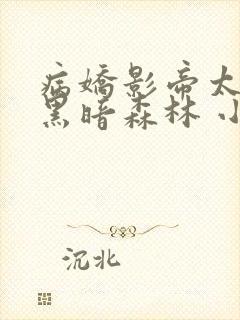 病嬌影帝太
黑暗森林 小
沉北